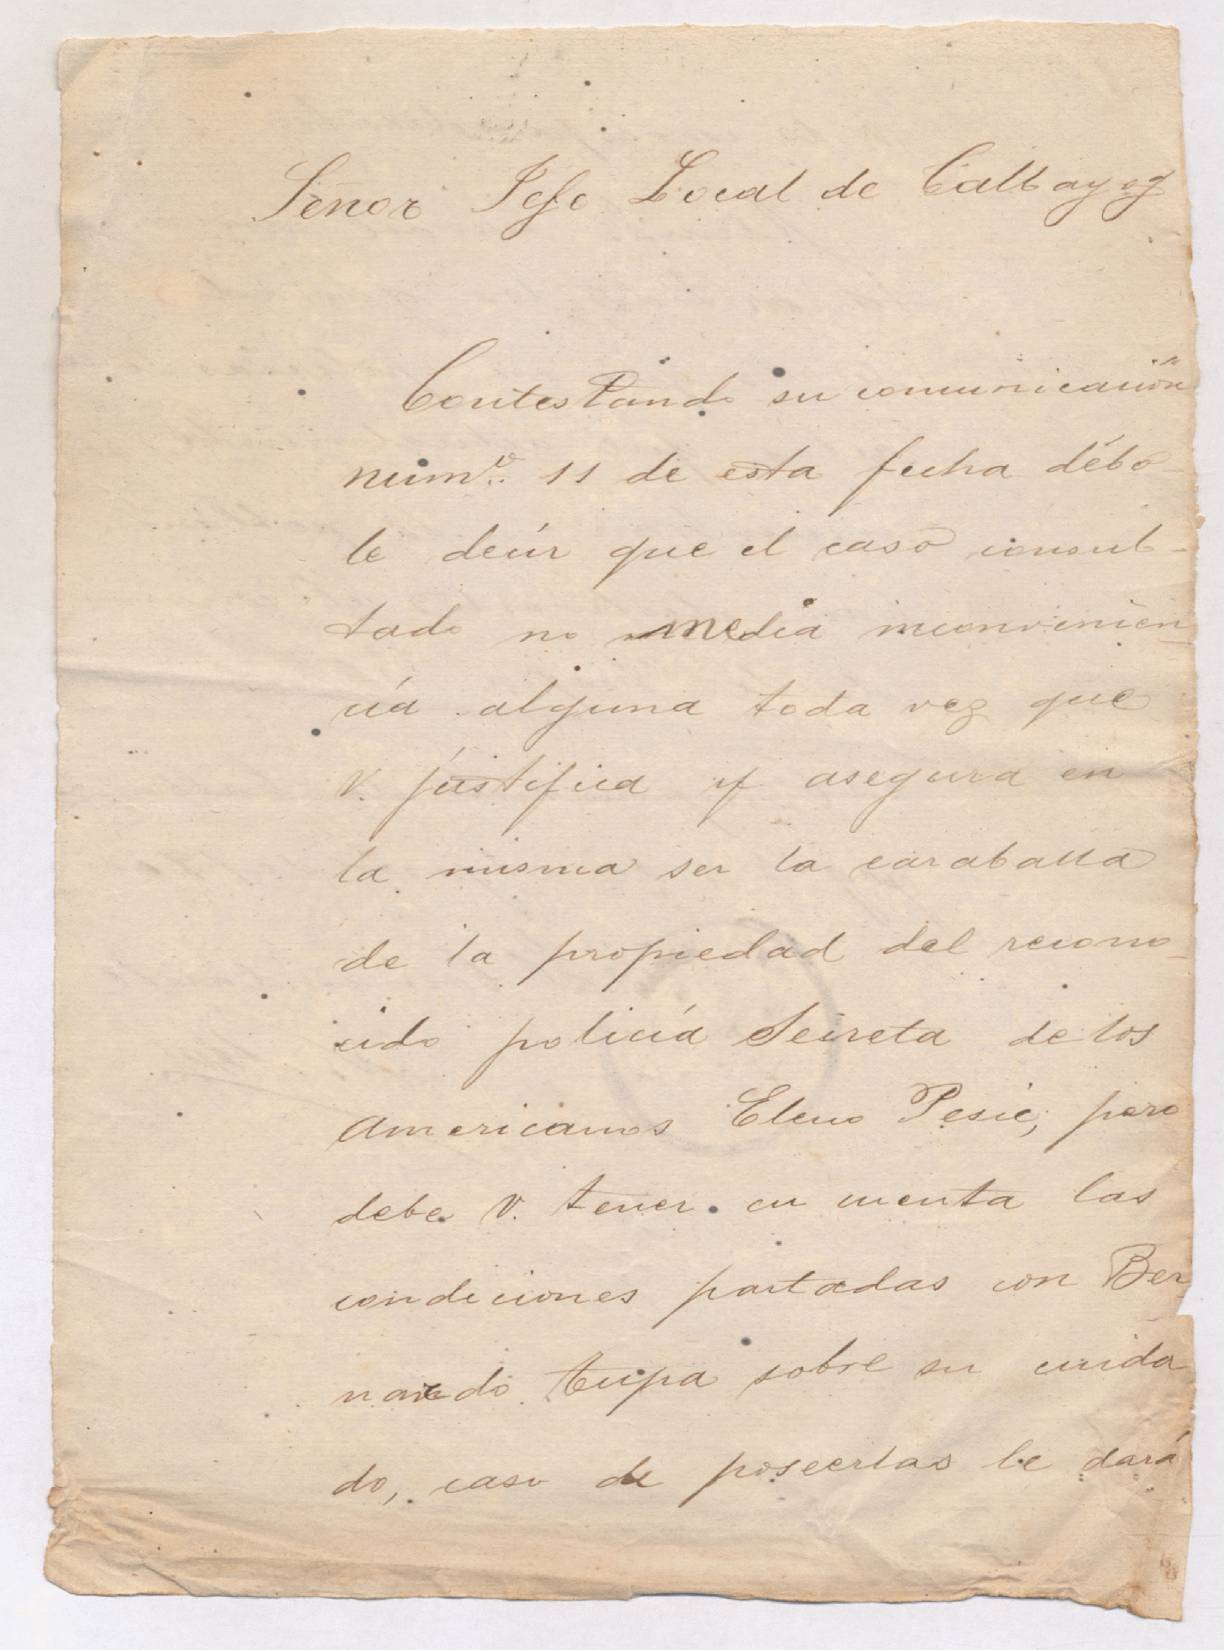 Señor Jefe Local de Calbayog
Contestando su comunicación
númº. 11 de esta fecha debo
le decir que el caso consul-
tado no media inconvenien
cia alguna toda vez que
V. justifica y asegura en
la misma ser la caraballa
de la propiedad del recono-
cido policía Secreta de los
americanos Eleno Pesie, pero
debe V. tener en cuenta las
condiciones pactadas con Ber
nardo Cupa sobre su cuida
do, caso de poseerlas le dará